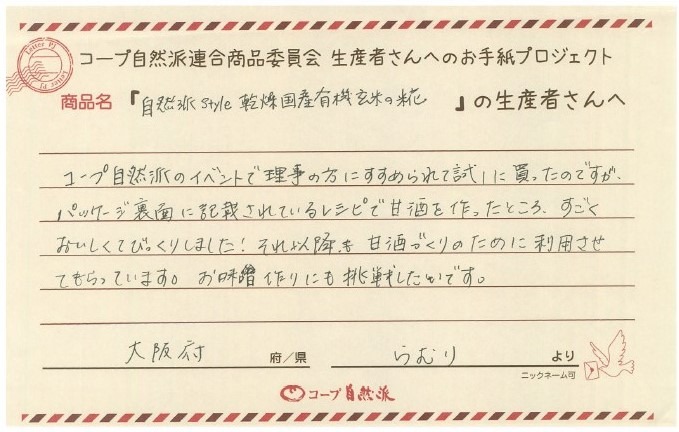 コープ自然派連合商品委員会 生産者さんへのお手紙プロジェクト
商品名『自然派Style 乾燥国産有機玄米の糀 』の生産者さんへ
コープ自然派のイベントで理事の方にすすめられて試しに買ったのですが、
パッケージ裏面に記載されているレシピで甘酒を作ったところ、すごく
おいしくてびっくりしました！それ以降も甘酒づくりのために利用させ
てもらっています。お味噌作りにも挑戦したいです。
大阪府 府／県 らむり より
ニックネーム可
コープ自然派